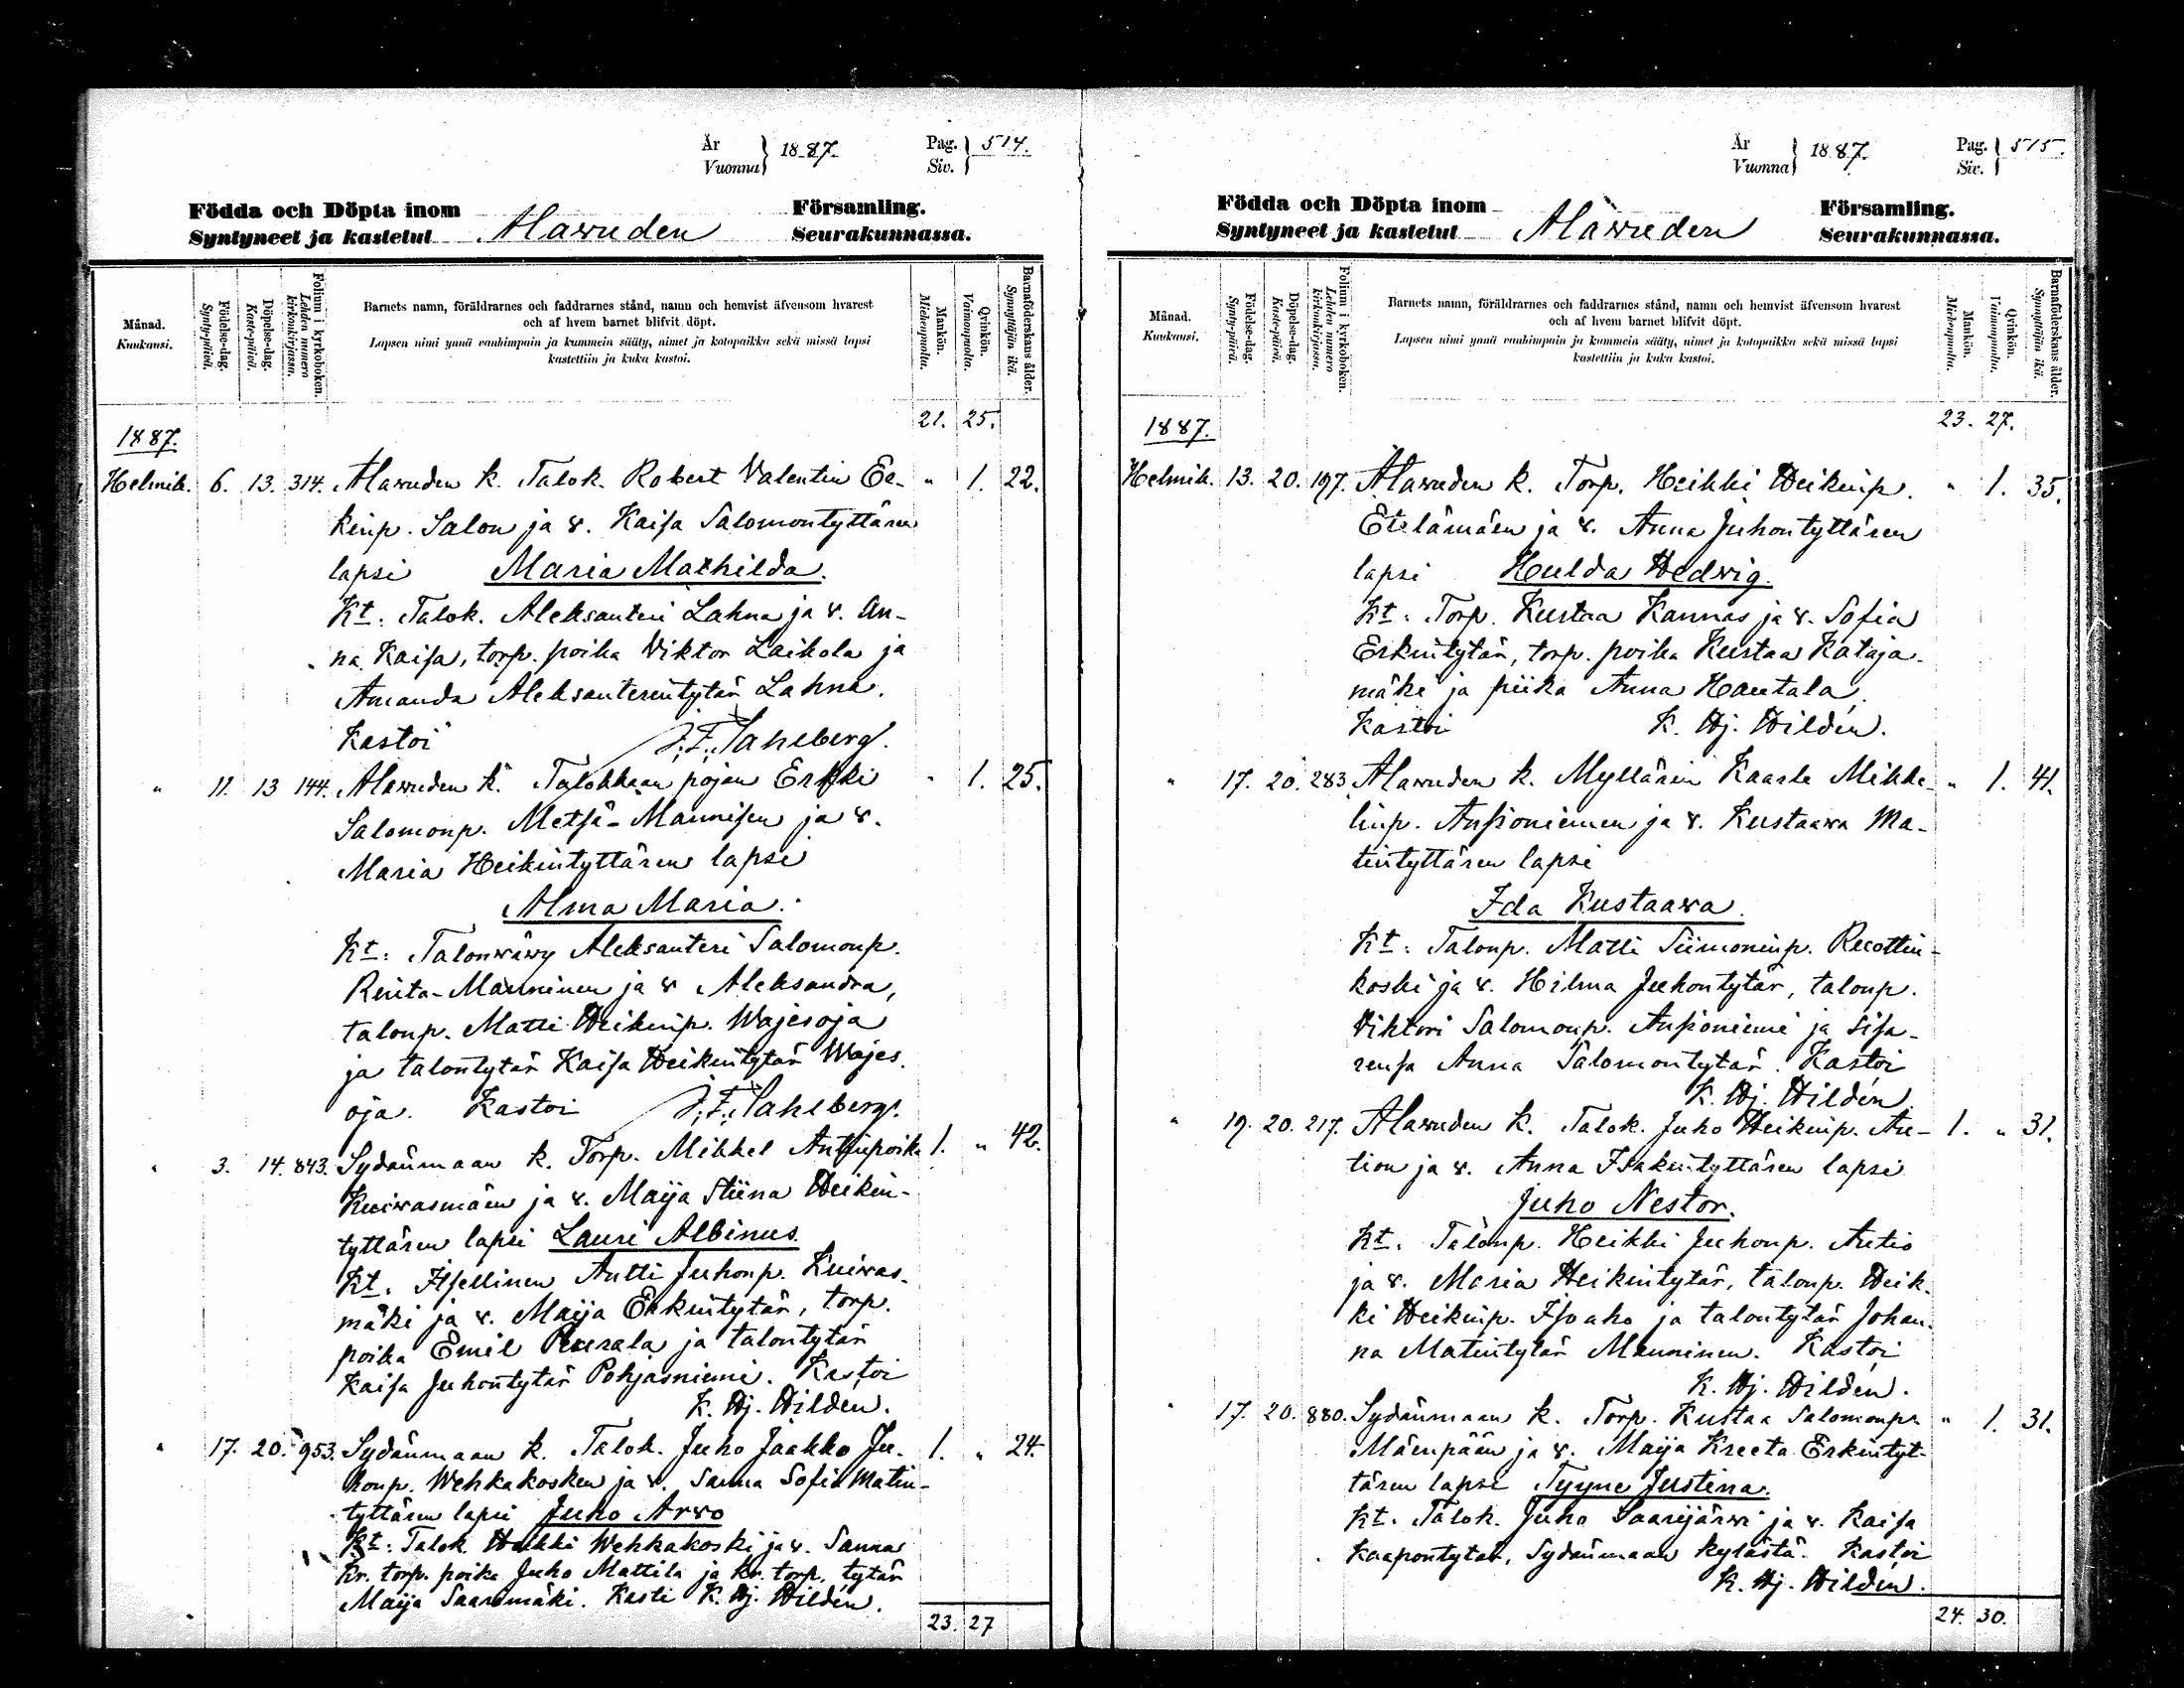 År
Vuonna } 1887.
Pag.
Siv. } 514.
Födda och Döpta inom
Syntyneet ja kastetut
Alawuden
Församling.
Seurakunnassa.
Månad.
Kuukausi.
Födelse-dag.
Synty-päivä.
Döpelse-dag.
Kaste-päivä.
Folium i kyrkoboken.
Lehden numero kirkonkirjassa.
Barnets namn, föräldrarnes och faddrarnes stånd, namn och hemvist äfvensom hvarest
och af hvem barnet blifvit döpt.
Lapsen nimi ynnä vanhimpain ja kummein sääty, nimet ja kotopaikka sekä missä lapsi
kastettiin ja kuka kastoi.
Mankön.
Miehenpuolta.
Qvinkön.
Vaimonpuolta.
Barnaföderskans ålder.
Synnyttäjän ikä.
21. 25.
1887.
Helmik. 6. 13. 314. Alawuden k. Talok. Robert Valentin Er- " 1. 22.
kinp. Salon ja v. Kaisa Salomontyttären
lapsi Maria Mathilda.
Kt: Talok. Aleksanteri Lahna ja v. An-
na Kaisa, torp. poika Viktor Laikola ja
Amanda Aleksanterintytär Lahna.
Kastoi J. F. Sahlberg.
" 11. 13 144. Alawuden k. Talokkaan pojan Erkki " 1. 25.
Salomonp. Metsä-Mannisen ja v.
Maria Heikintyttären lapsi
Alma Maria.
Kt: Talonwäwy Aleksanteri Salomonp.
Rinta-Manninen ja v Aleksandra,
talonp. Matti Heikinp. Wajesoja
ja talontytär Kaisa Heikintytär Wajes-
oja. Kastoi J. F. Sahlberg.
" 3. 14. 843. Sydänmaan k. Torp. Mikkel Antinpoika 1. " 42.
Kuiwasmäen ja v. Maija Stiina Heikin-
tyttären lapsi Lauri Albinus.
Kt. Itsellinen Antti Juhonp. Kuiwas-
mäki ja v. Maija Erkintytär, torp.
poika Emil Peurala ja talontytär
Kaisa Juhontytär Pohjasniemi. Kastoi
K. Hj. Hildén.
" 17. 20. 953. Sydänmaan k. Talok. Juho Jaakko Ju- 1. " 24.
honp. Wehkakosken ja v. Sanna Sofia Matin-
tyttären lapsi Juho Arwo
Kt: Talok. Heikki Wehkakoski ja v. Sanna
Kr. torp. poika Juho Mattila ja Kr. torp. tytär
Maija Saarimäki. Kasti K. Hj. Hildén.
23. 27
År
Vuonna } 1887.
Pag.
Siv. } 515.
Födda och Döpta inom
Syntyneet ja kastetut
Alawuden
Församling.
Seurakunnassa.
Månad.
Kuukausi.
Födelse-dag.
Synty-päivä.
Döpelse-dag.
Kaste-päivä.
Folium i kyrkoboken.
Lehden numero kirkonkirjassa.
Barnets namn, föräldrarnes och faddrarnes stånd, namn och hemvist äfvensom hvarest
och af hvem barnet blifvit döpt.
Lapsen nimi ynnä vanhimpain ja kummein sääty, nimet ja kotopaikka sekä missä lapsi
kastettiin ja kuka kastoi.
Mankön.
Miehenpuolta.
Qvinkön.
Vaimonpuolta.
Barnaföderskans ålder.
Synnyttäjän ikä.
23. 27.
1887.
Helmik. 13. 20. 197. Alawuden k. Torp. Heikki Heikinp. " 1. 35.
Etelämäen ja v. Anna Juhontyttären
lapsi Hulda Hedwig.
Kt: Torp. Kustaa Kannas ja v. Sofia
Erkintytär, torp. poika Kustaa Kataja-
mäki ja piika Anna Hautala.
Kastoi K. Hj. Hildén.
" 17. 20. 283. Alawuden k. Myllärin Kaarle Mikke- " 1. 41.
linp. Ansioniemen ja v. Kustaawa Ma-
tintyttären lapsi
Ida Kustaawa.
Kt: Talonp. Matti Siimoninp. Ruottin-
koski ja v. Hilma Juhontytär, talonp.
Viktori Salomonp. Ansioniemi ja sisa-
rensa Anna Salomontytär. Kastoi
K. Hj. Hildén
" 19. 20. 217. Alawuden k. Talok. Juho Heikinp. Au- 1. " 31.
tion ja v. Anna Isakintyttären lapsi
Juho Nestor.
Kt: Talonp. Heikki Juhonp. Autio
ja v. Maria Heikintytär, talonp. Heik-
ki Heikinp. Isoaho ja talontytär Johan-
na Matintytär Manninen. Kastoi
K. Hj. Hildén.
" 17. 20. 880. Sydänmaan k. Torp. Kustaa Salomonpn " 1. 31.
Mäenpään ja v. Maija Kreeta Erkintyt-
tären lapsi Tyyne Justina.
Kt: Talok. Juho Saarijärwi ja v. Kaisa
Kaapontytär, Sydänmaan kylästä. Kastoi
K. Hj. Hildén.
24. 30.